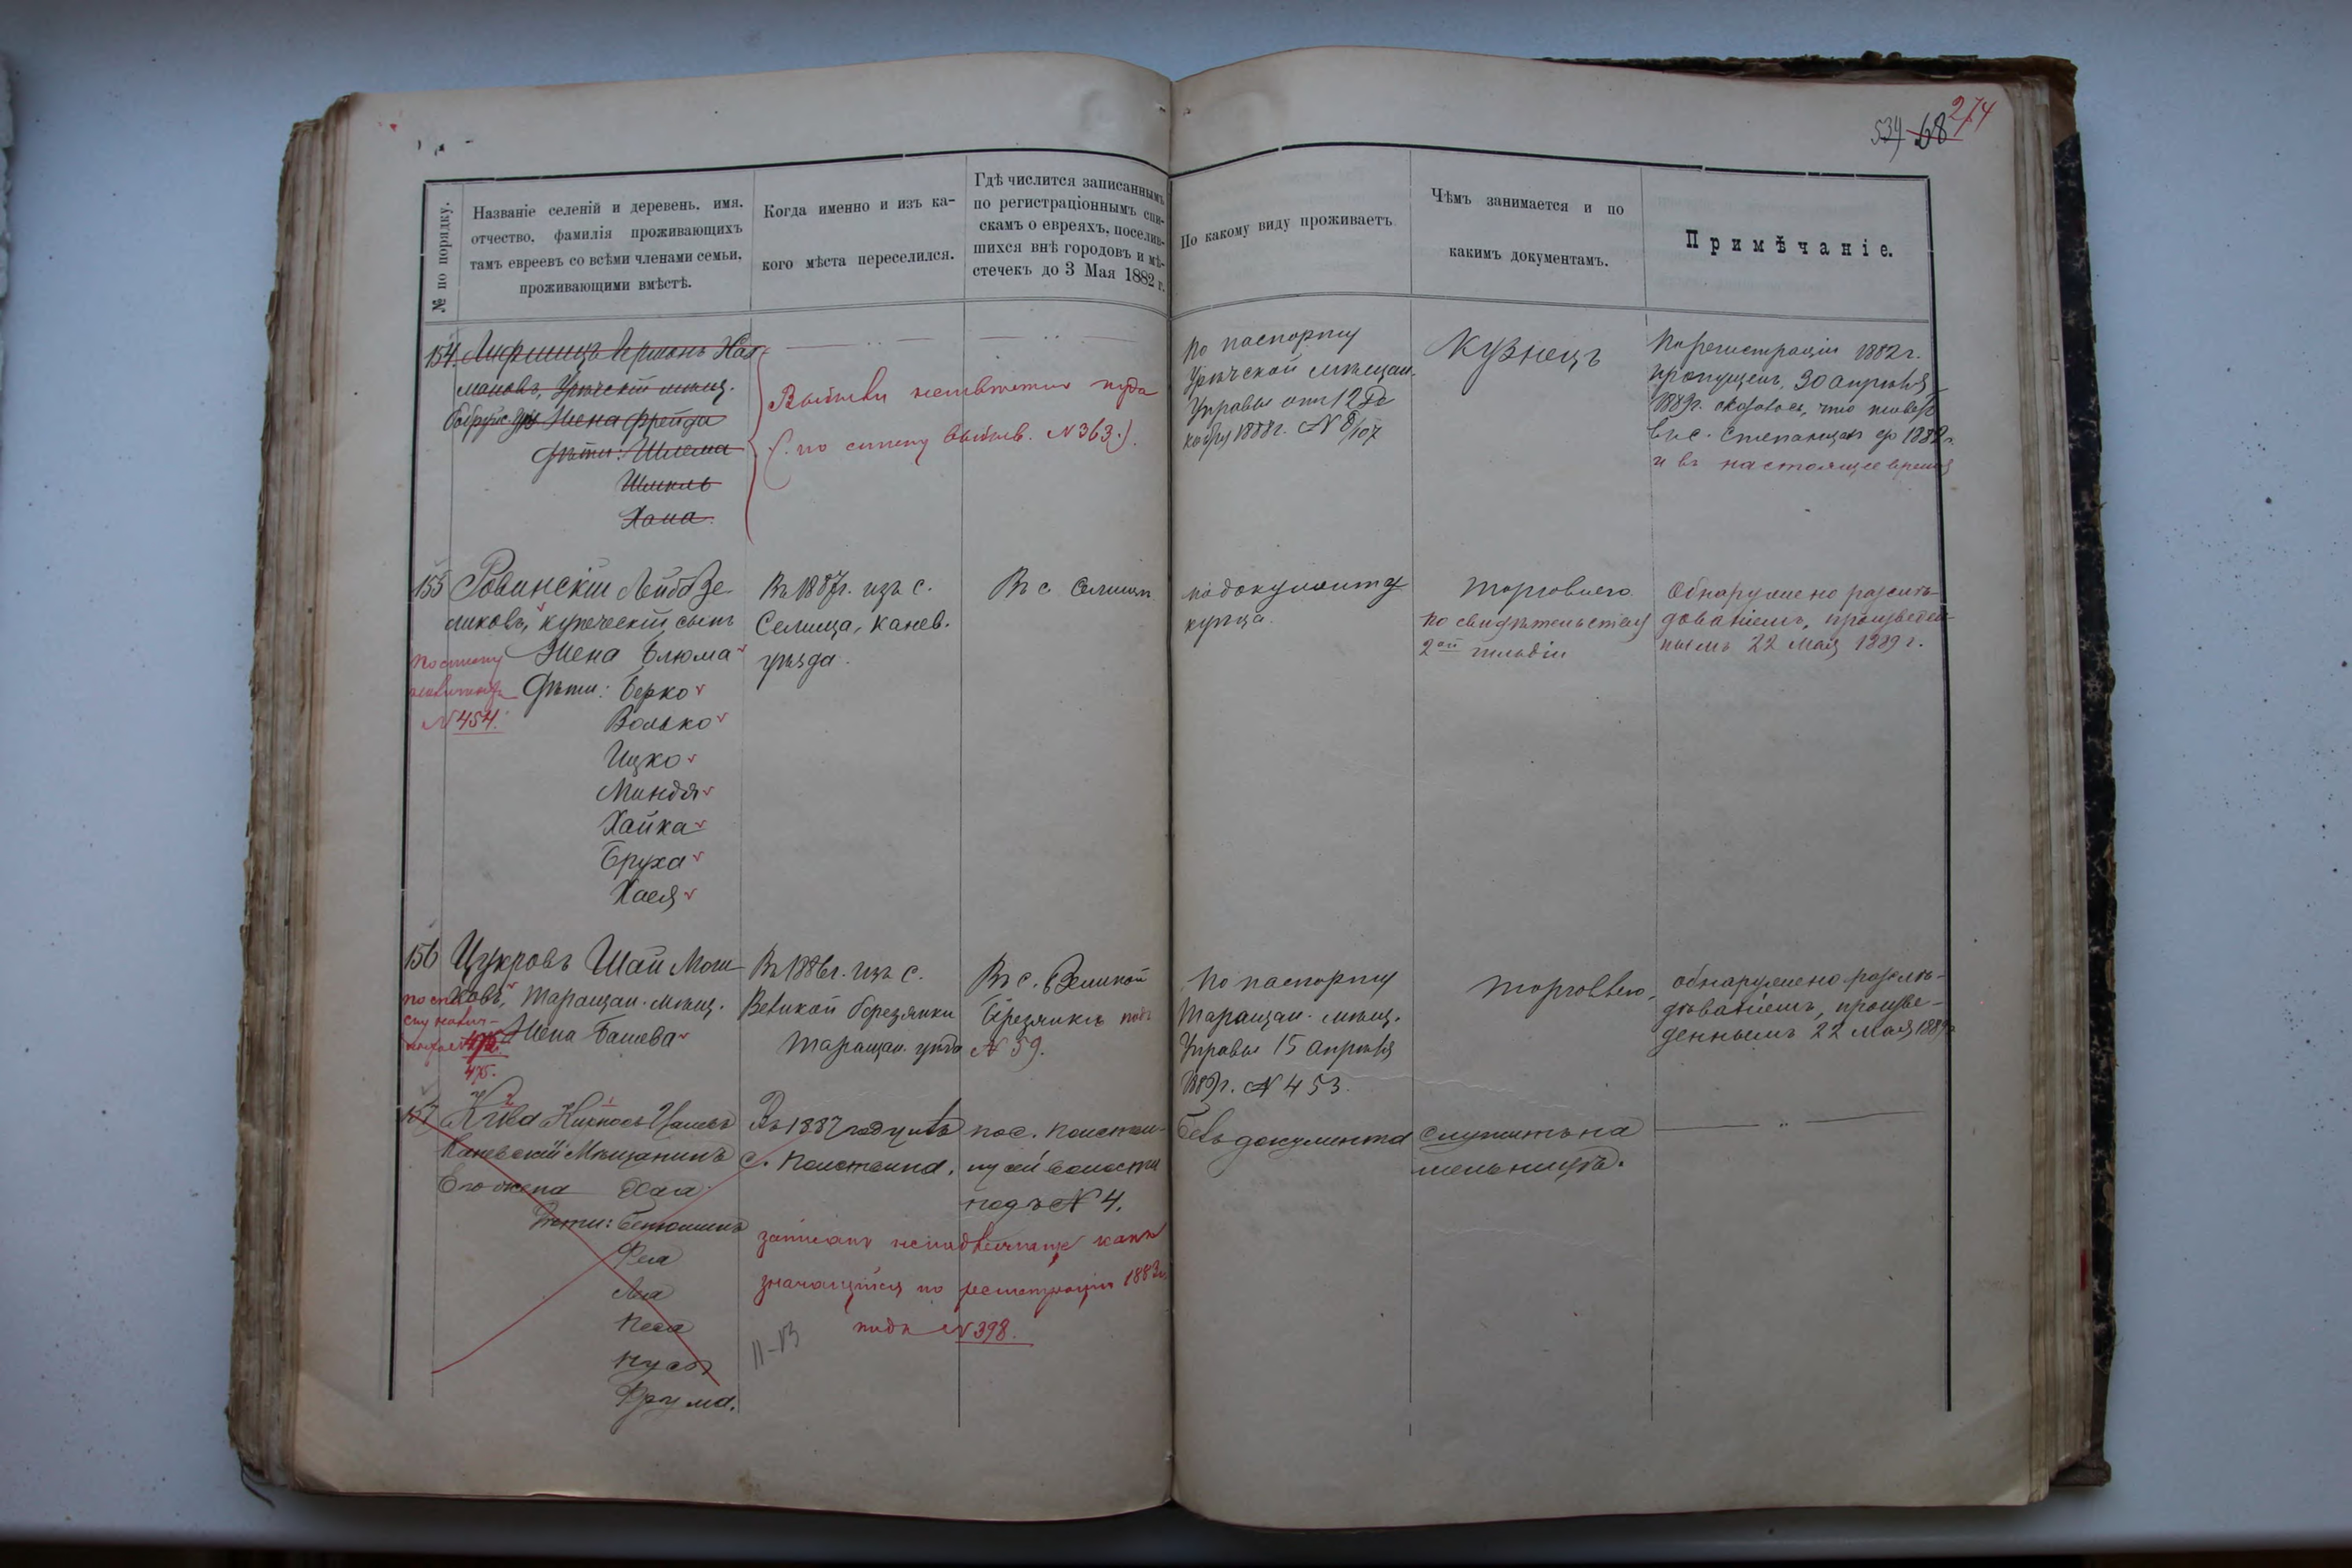 534 68 274
№ по порядку.
Названіе селеній и деревень, имя,
отчество, фамилія проживающихъ
тамъ евреевъ со всѣми членами семьи,
проживающими вмѣстѣ.
Когда именно и изъ ка-
кого мѣста переселился.
Гдѣ числится записаннымъ
по регистраціоннымъ спи-
скамъ о евреяхъ, поселив-
шихся внѣ городовъ и мѣ-
стечекъ до 3 Мая 1882 г.
По какому виду проживаетъ
Чѣмъ занимается и по
какимъ документамъ.
Примѣчаніе.
154. Лифшицъ Нах
мановъ,
Жена Фрейда
Дѣти: Шлема
Шмиль
Хана
Выбыли неизвѣстно куда
(по списку выбыв. № 363.).
По паспорту
мѣщан.
Управы отъ 12 Де
кабря 1888 г. № 8/107
Кузнецъ
По регистраціи 1882 г.
пропущенъ, 30 апрѣля
1889 г. оказалось, что
въ с. до 1882 г.
и въ настоящее время
155 Ровинскій Лейба Зе
ликовъ, купеческій сынъ
Жена Блюма
Дѣти: Берко
Волько
Ицко
Миндя
Хайка
Бруха
Хася
По списку
№ 454.
Въ 1887 г. изъ с.
Селища, Канев.
уѣзда.
Въ с. Селищѣ
по документу
купца.
Торговлею
по свидѣтельству
2ой гильдіи
Обнаружено разслѣ-
дованіемъ, произведен-
нымъ 22 Мая 1889 г.
156 Цукровъ Шая Мош
ковъ, Таращан. мѣщ.
Жена Башева
475.
Въ 1886 г. изъ с.
Великой Березянки
Таращан. уѣзда
Въ с. Великой
Березянкѣ подъ
№ 59.
По паспорту
Таращан. мѣщ.
Управы 15 Апрѣля
1889 г. № 453.
Торговлею,
обнаружено разслѣ-
дованіемъ, произве-
деннымъ 22 Мая 1889 г.
157 Кива
Каневскій Мѣщанинъ
Его жена Хая
Дѣти: Бенюминъ
Рея
Лея
Песя
Нусь
Фрума.
Въ 1887 году изъ
с.
пос.
ну сей волости
подъ № 4.
Безъ документа
служитъ на
мельницѣ.
записанъ какъ
значащійся по регистраціи 1882 г.
подъ № 398.
11-13